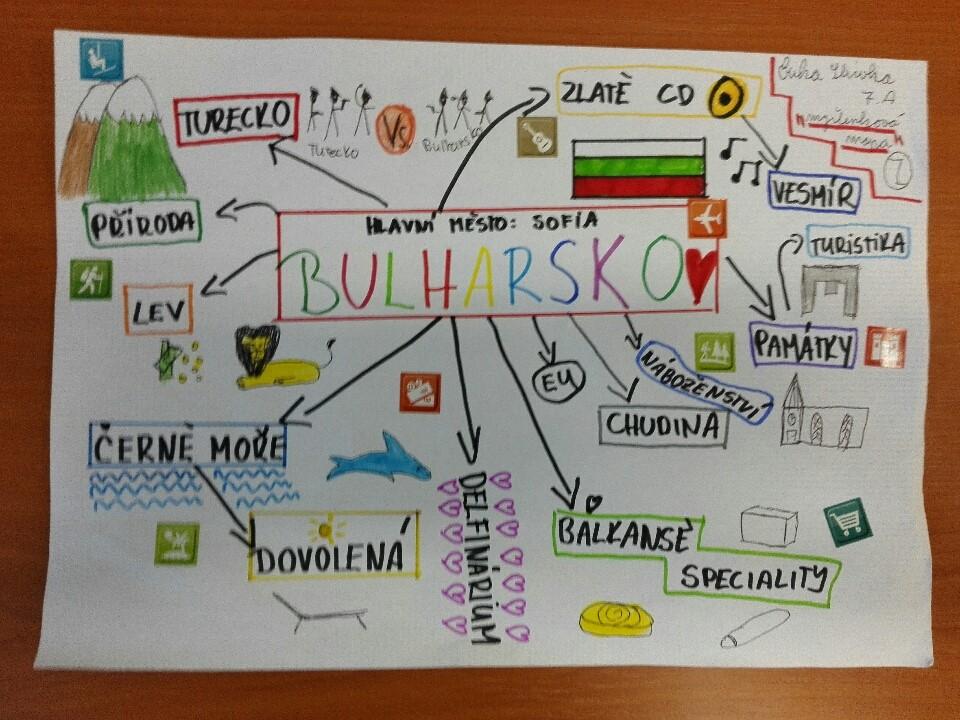 7.A
"myšlenková
mapa"
1
ZLATÉ CD
TURECKO
VS
Turecko
Bulharsko
VESMÍR
PŘÍRODA
HLAVNÍ MĚSTO: SOFIA
BULHARSKO
TURISTIKA
LEV
PAMÁTKY
EU
NÁBOŽENSTVÍ
CHUDINA
ČERNÉ MOŘE
DELFINÁRIUM
DOVOLENÁ
BALKANSÉ
SPECIALITY